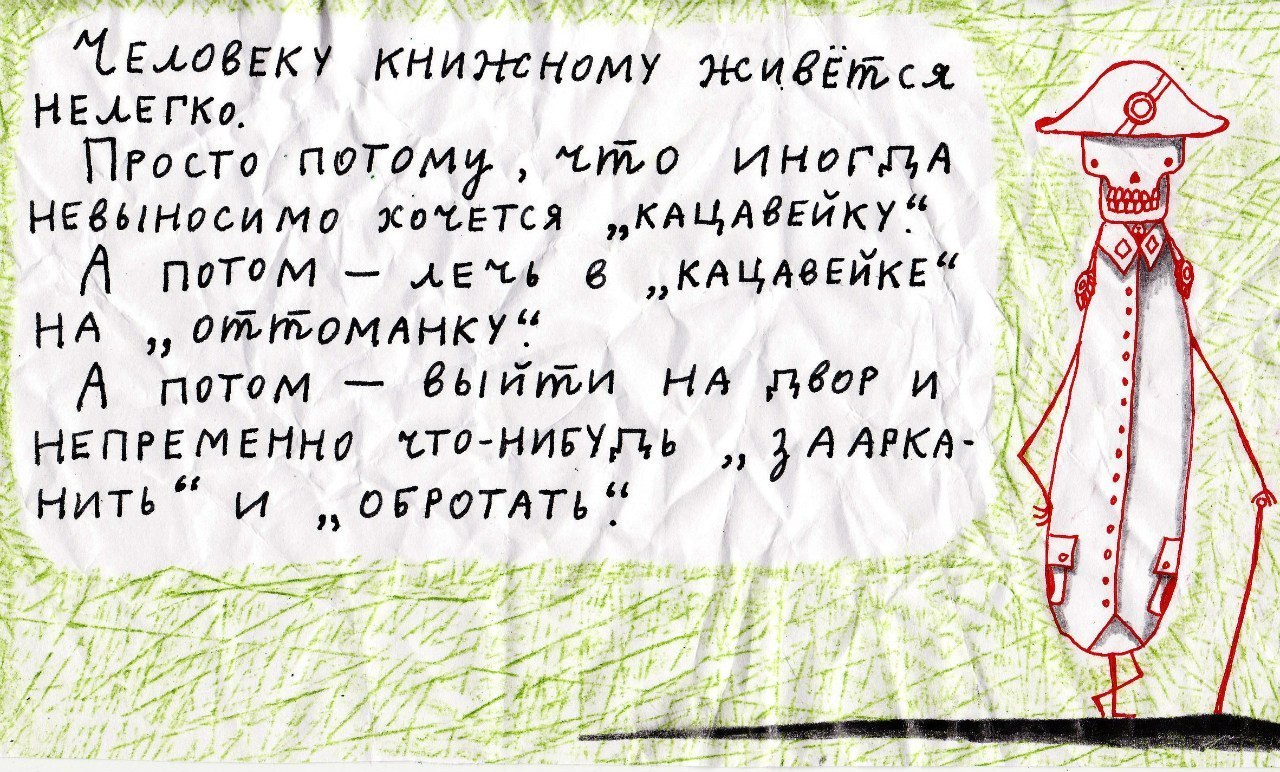 Человеку книжному живётся
нелегко.
Просто потому, что иногда
невыносимо хочется „кацавейку“.
А потом — лечь в „кацавейке“
на „оттоманку“.
А потом — выйти на двор и
непременно что-нибудь „заарка-
нить“ и „обротать“.